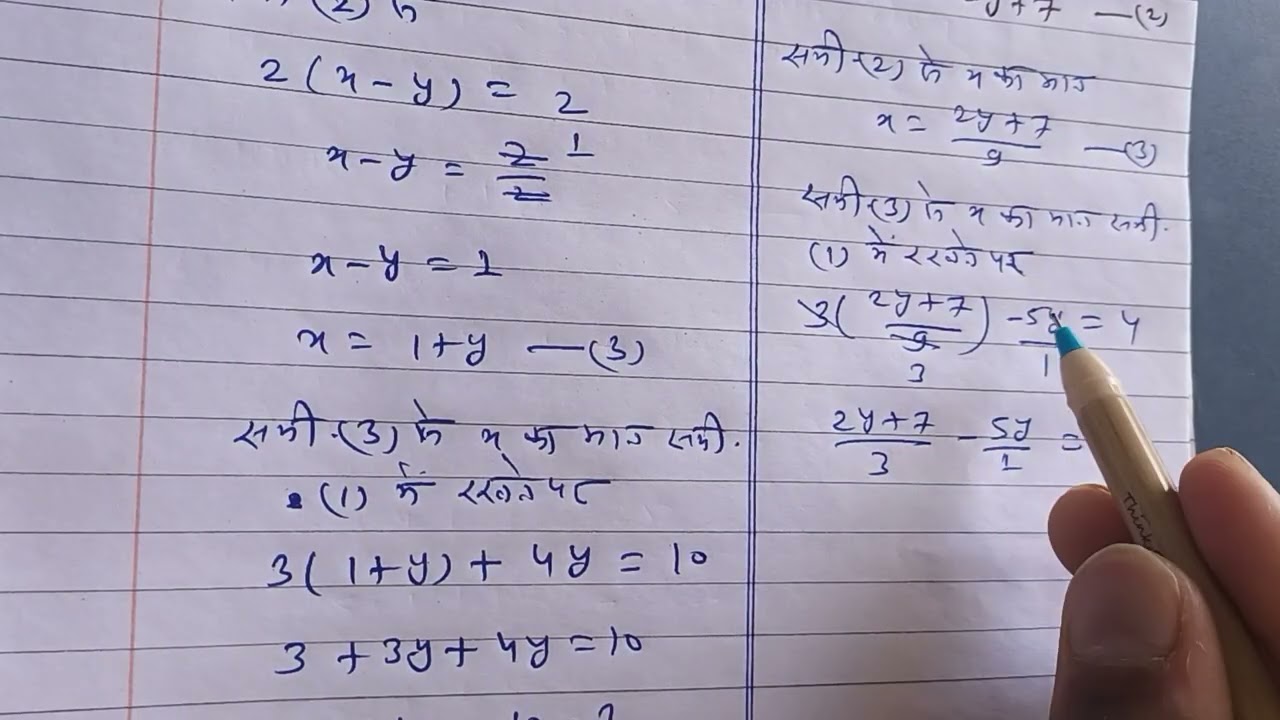 (2) से
2(x-y) = 2
x-y = 2/2 1
x-y = 1
x = 1+y —(3)
समी.(3) से x का मान समी.
(1) में रखने पर
3(1+y) + 4y = 10
3 + 3y + 4y = 10
y+7 —(2)
समी.(2) से x का मान
x = 2y+7/9 —(3)
समी.(3) से x का मान समी.
(1) में रखने पर
3(2y+7/9) -5y/1 = 4
3
2y+7/3 - 5y/1 =
Think